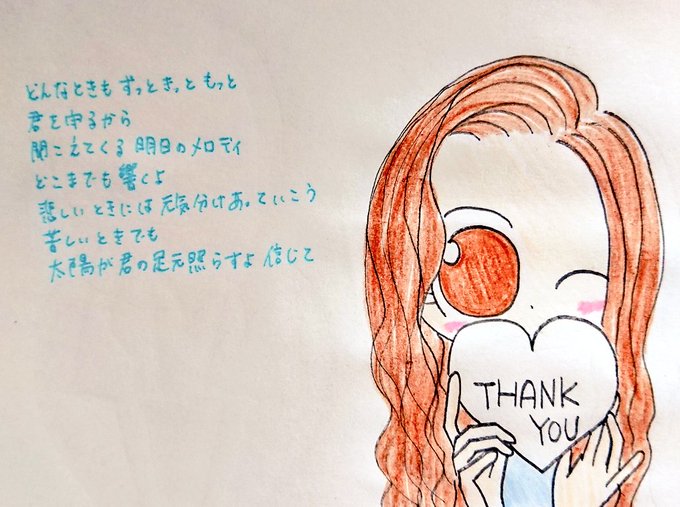 どんなときも ずっときっと もっと
君を守るから
聞こえてくる 明日のメロディ
どこまでも 響くよ
悲しいときには 元気分けあっていこう
苦しいときでも
太陽が君の足元照らすよ 信じて
THANK
YOU